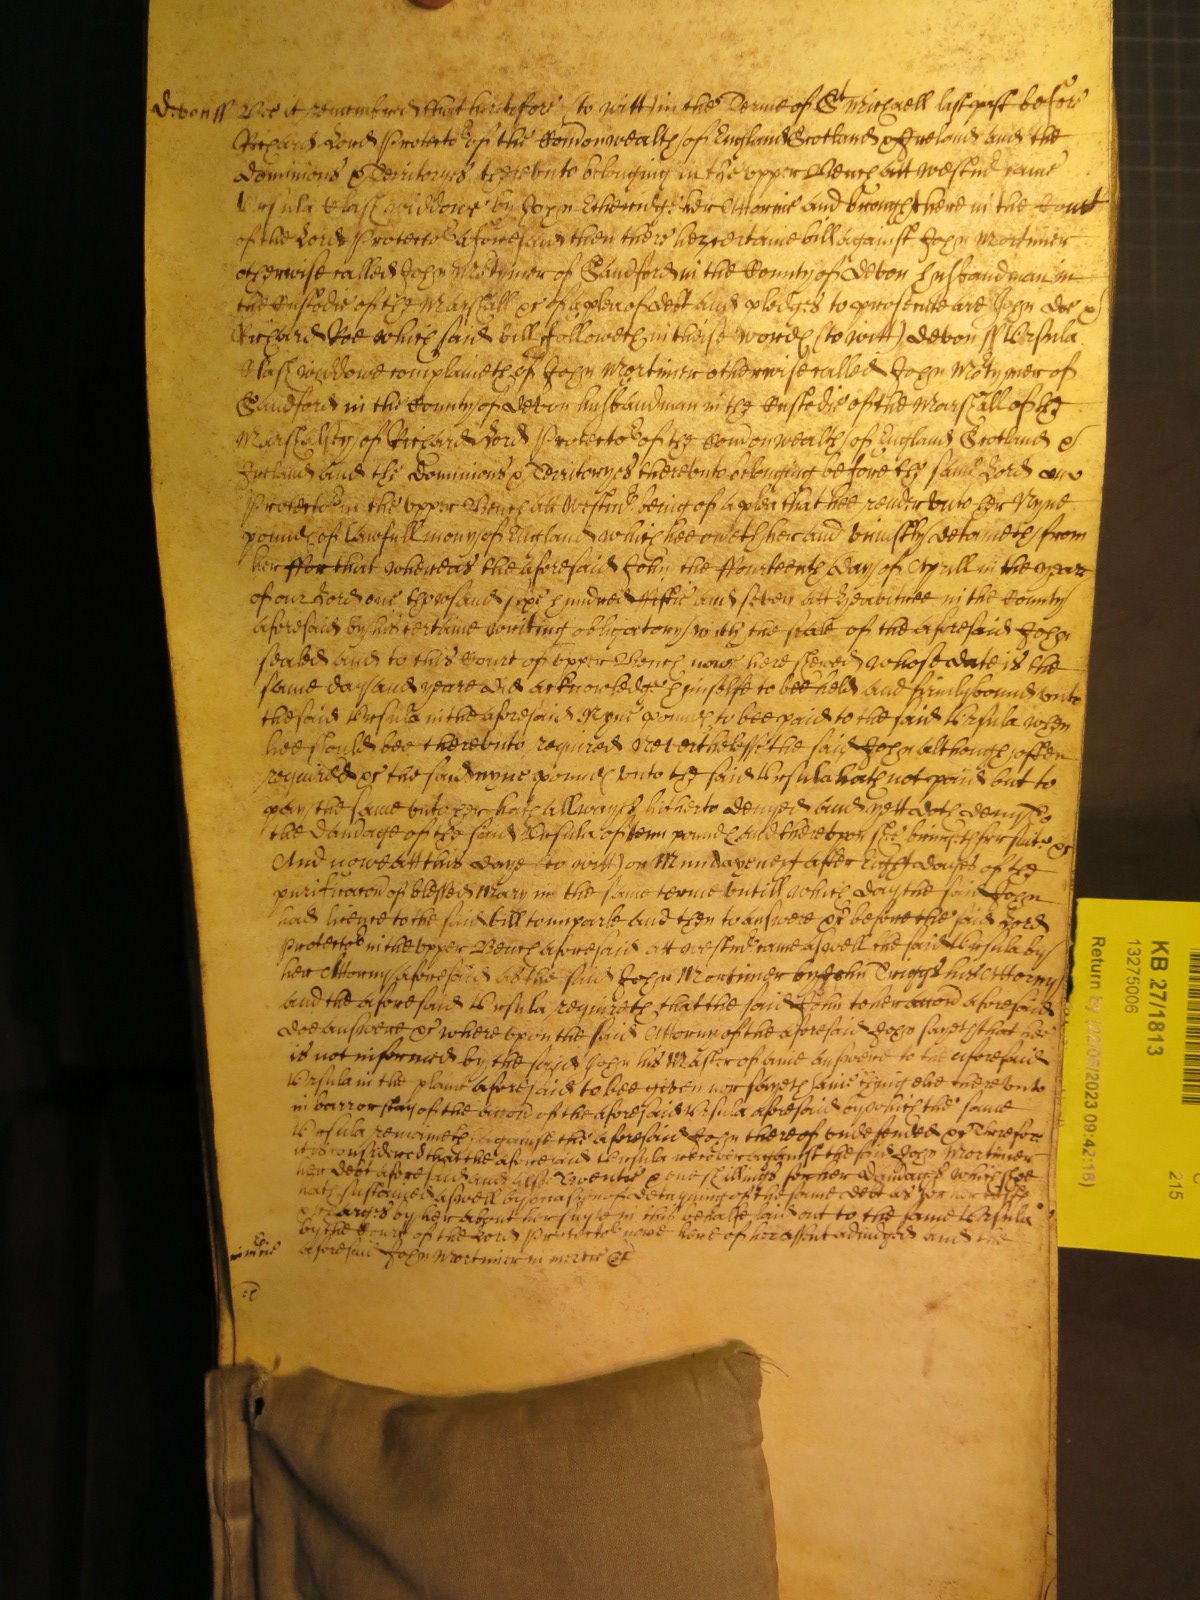 Devon ss Bee it remembred that heretofore (to witt) in the Terme of St Michaell last past before
Richard Lord Protector of the Comonwealth of England Scotland & Ireland and the
Dominions & Territoryes thereunto belonging in the upper Bench att Westmr came
Ursula widdowe by John Etheridge her Attornie and brought here in the Court
of the Lord Protector aforesaid then there her certaine bill against John Mortimer
otherwise called John Motymer of Sandford in the County of Devon husbandman in
the Custodie of the Marshall &c of a plea of debt and pledges to prosecute are John Doe &
Richard Roe which said bill followeth in theise words (to witt) Devon ss Ursula
widdowe complaineth of John Mortimer otherwise called John Motymer of
Sandford in the County of Devon husbandman in the Custodie of the Marshall of the
Marshalsey of Richard Lord Protector of the Comonwealth of England Scotland &
Ireland and the Dominions & Territoryes thereunto belonging before the same Lord
Protector in the upper Bench att Westmr being of a plea that hee render unto her Nyne
pounds of lawfull mony of England which hee oweth her and uniustly detaineth from
her ffor that whereas the aforesaid John the ffourteenth day of Aprill in the yeare
of our Lord one thousand sixe hundred ffiftie and seven att in the County
aforesaid by his certaine writing obligatory with the seale of the aforesaid John
sealed and to this Court of upper Bench nowe here shewed whose date is the
same day and yeare did acknowledge himselfe to bee held and firmly bound unto
the said Ursula in the aforesaid Nyne pounds to bee paid to the said Ursula when
hee should bee thereunto required Neverthelesse the said John although often
required &c the said nyne pounds unto the said Ursula hath not paid but to
pay the same unto her hath allwayes hitherto denyed and yett doth deny to
the damage of the said Ursula of tenn pounds and thereupon shee bringeth her suite &c
And nowe att this daye (to witt) on Munday next after Eight dayes of the
purificacon of blessed Mary in the same terme untill which day the said John
had licence to the said bill to imparle and then to answere &c before the said Lord
Protector in the upper Bench aforesaid att Westmr came aswell the said Ursula by
her Attorny aforesaid as the said John Mortimer by John Triggs his Attorny
and the aforesaid Ursula requireth that the said John to her accon aforesaid
doe answere &c whereupon the said Attorny of the aforesaid John sayth that hee
is not informed by the said John his Master of anie answere to the aforesaid
Ursula in the plaint aforesaid to bee given nor sayeth anie thing else thereunto
in barr or stay of the accon of the aforesaid Ursula aforesaid by which the same
Ursula remaineth against the aforesaid John thereof undefended &c Therefore
it is considered that the aforesaid Ursula recover against the said John Mortimer
her debt aforesaid and alsoe Twentie & one shillings for her damages which shee
hath sustained aswell by occasion of detayning of the same debt as for her costs
& charges by her about her suyte in this behalfe laid out to the same Ursula
by the Court of the Lord Protector nowe here of her assent adiudged and the
aforesaid John Mortimer in mercie &c
in mcie
KB 27/1813
13275006
Return by (22/03/2023 09:42:16)
215